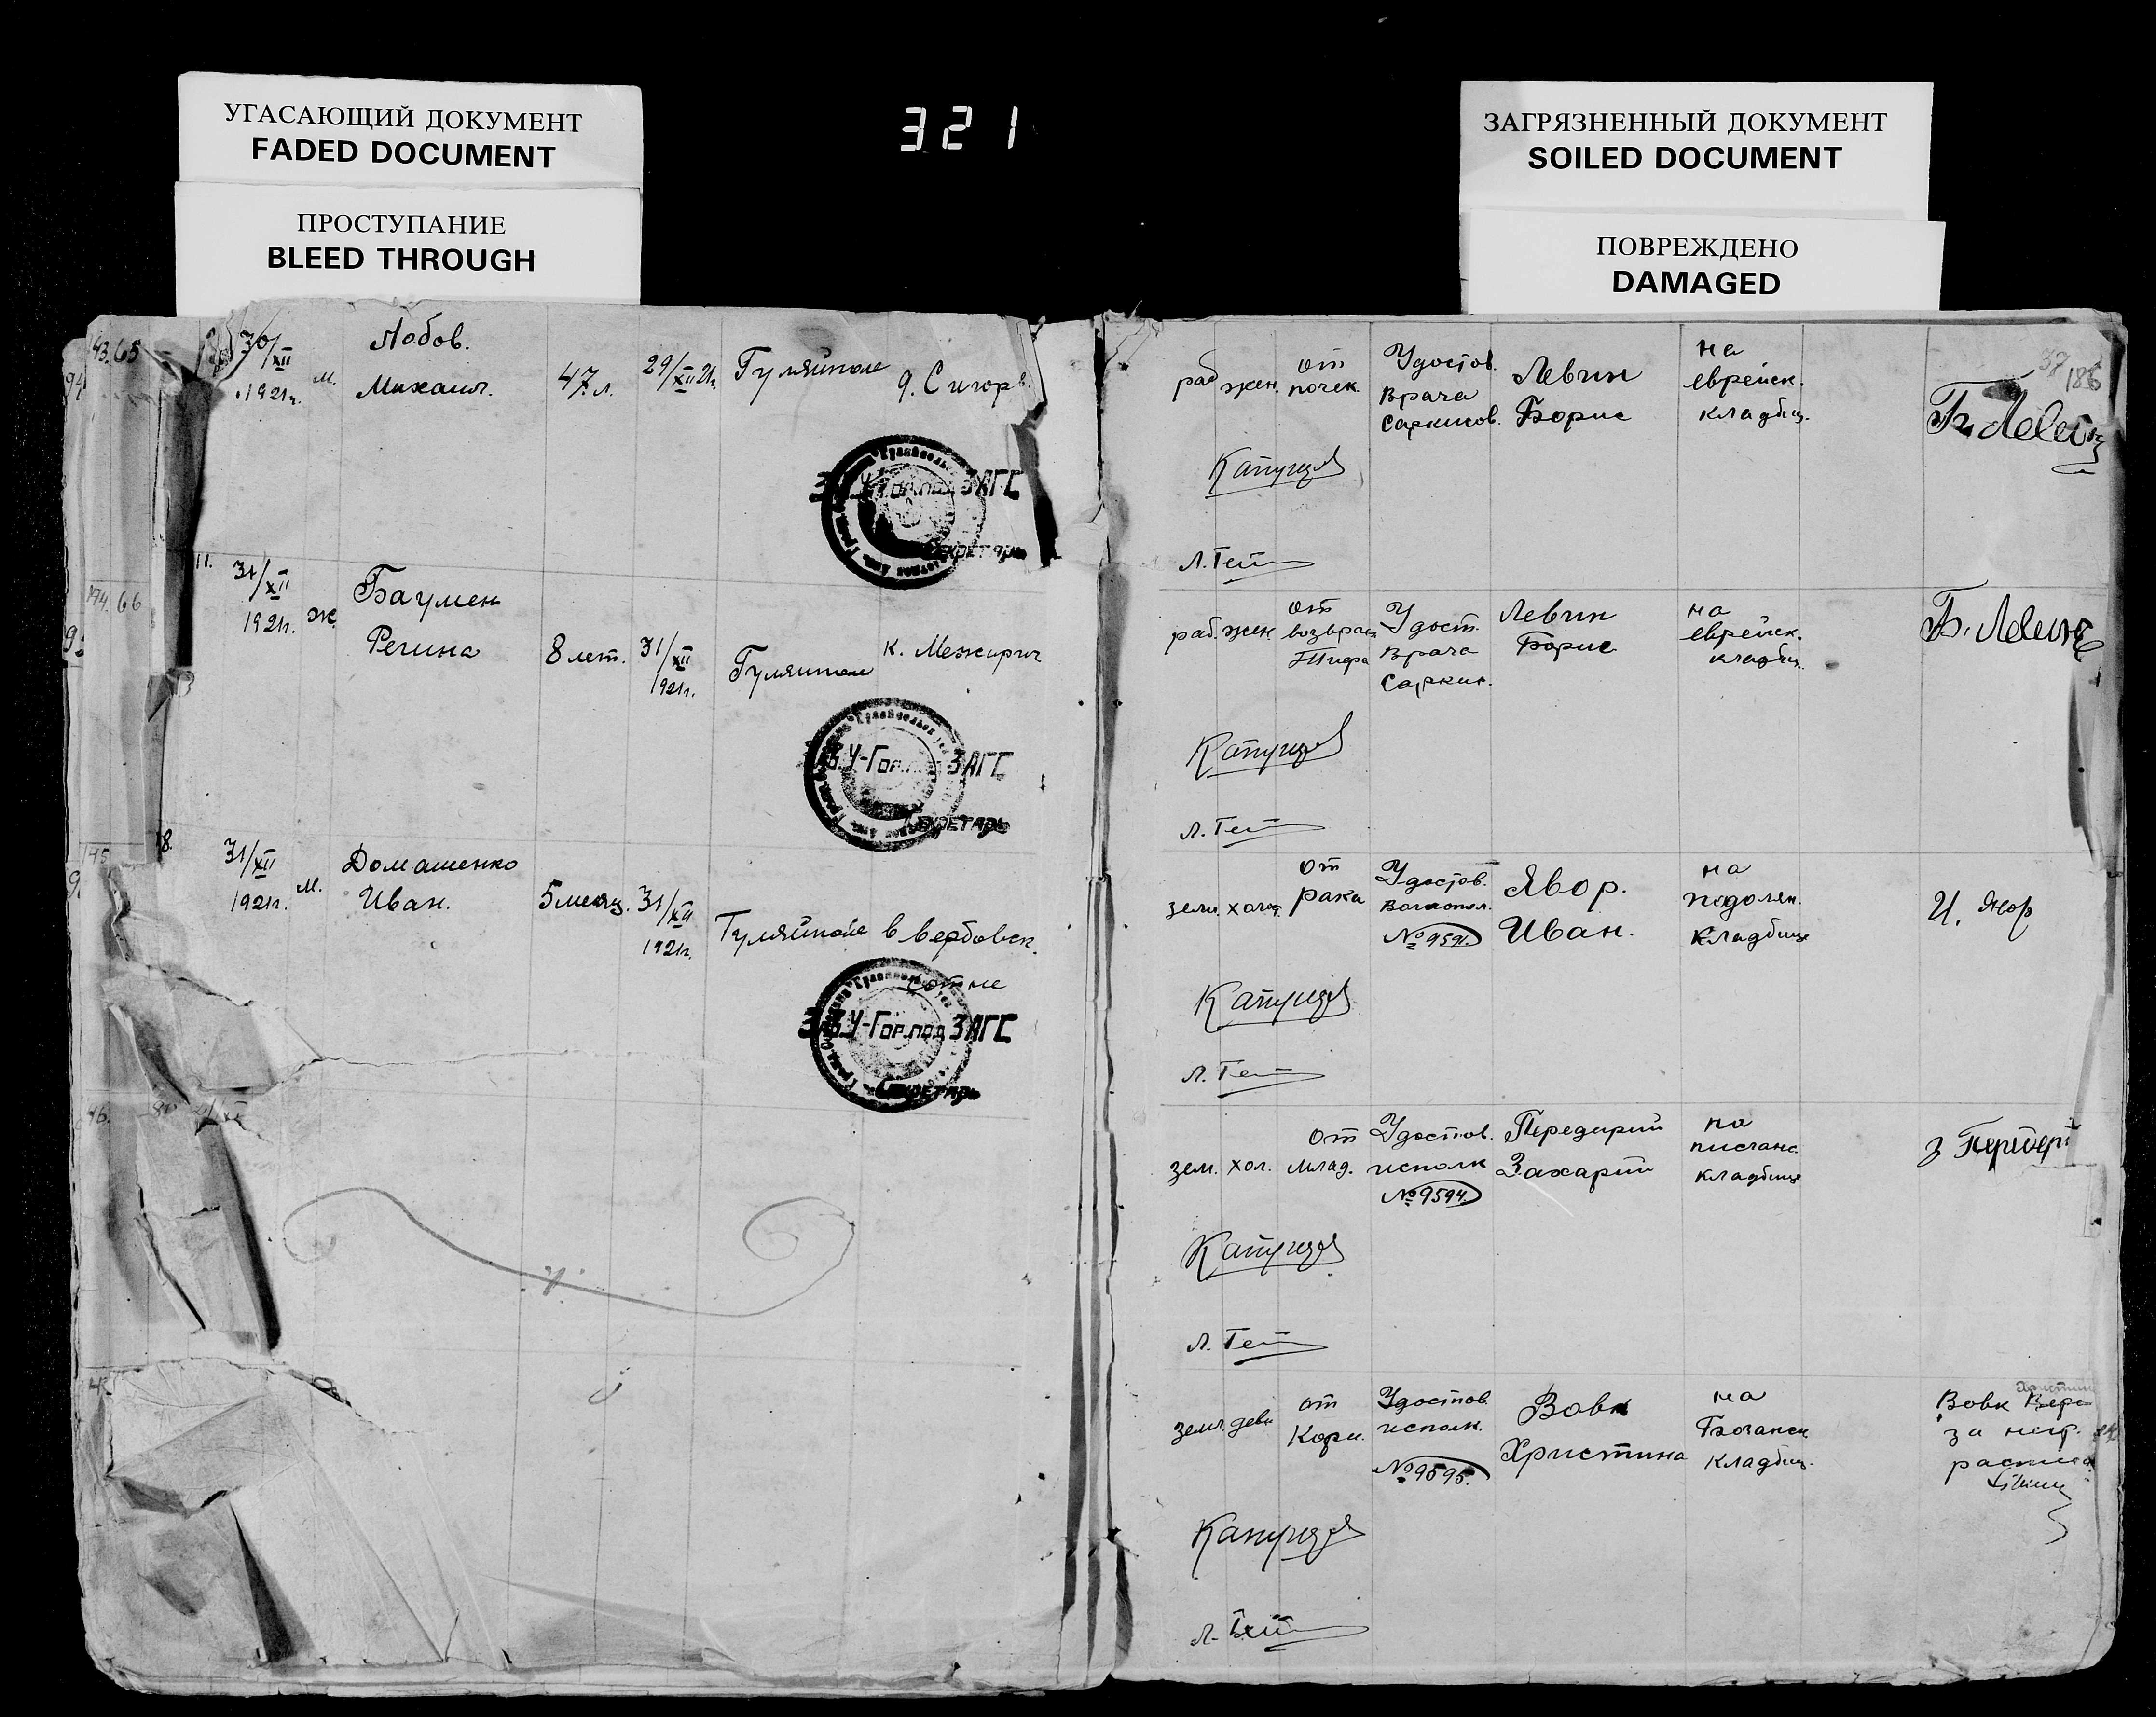 УГАСАЮЩИЙ ДОКУМЕНТ
FADED DOCUMENT
ПРОСТУПАНИЕ
BLEED THROUGH
321
ЗАГРЯЗНЕННЫЙ ДОКУМЕНТ
SOILED DOCUMENT
ПОВРЕЖДЕНО
DAMAGED
30/XII
1921г.
м.
Лобов.
Михаил.
47 л.
29/XII 21г.
Гуляйполе
раб. жен.
от
почек
Удостов.
врача
Саркисов.
Левин
Борис
на
еврейск.
кладбищ.
186
Б. Левин
ЗАГС
Секретарь
Л. Гет
31/XII
1921г.
ж.
Баумен
Регина
8 лет.
31/XII
1921г.
Гуляйполе
к. Межирич
раб. жен
от
возвратн
Тифа
Удост.
врача
Саркис.
Левин
Борис
на
еврейск.
кладбищ.
Б. Левин
Зав. У-Гор.под ЗАГС
Секретарь
Л. Гет
31/XII
1921г.
м.
Домашенко
Иван.
5 месяц.
31/XII
1921г.
Гуляйполе в вербовск.
сотне
земл. холост.
от
рака
Удостов.
№ 9591.
Явор.
Иван.
на
подолян.
кладбище
И. Явор
Зав. У-Гор.под ЗАГС
Секретарь
Л. Гет
зем. хол.
от
млад.
Удостов.
исполк
№ 9594.
Передирий
Захарий
на
писчанс
кладбище
Л. Гет
земл. деви
от
Кори.
Удостов
исполк.
№ 9595.
Вовк
Христина
на
кладбищ.
Вовк
за негр.
Л. Гет